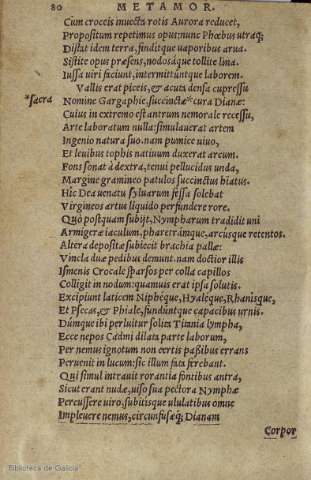 80 METAMOR.
Cum croceis inuecta rotis Aurora reducet,
Propositum repetimus opus: nunc Phœbus utraq;
Distat idem terra, finditque uaporibus arua.
Sistite opus præsens, nodosáque tollite lina.
Iussa uiri faciunt, intermittúntque laborem.
Vallis erat piceis, & acuta densa cupressu
*sacra Nomine Gargaphie, succinctæ *cura Dianæ:
Cuius in extremo est antrum nemorale recessu,
Arte laboratum nulla: simulauerat artem
Ingenio natura suo. nam pumice uiuo,
Et leuibus tophis natiuum duxerat arcum.
Fons sonat à dextra, tenui pellucidus unda,
Margine gramineo patulos succinctus hiatus.
Hic Dea uenatu syluarum fessa solebat
Virgineos artus liquido perfundere rore.
Quò postquam subijt, Nympharum tradidit uni
Armigeræ iaculum, pharetrámque, arcusque retentos.
Altera depositæ subiecit brachia pallæ:
Vincla duæ pedibus demunt. nam doctior illis
Ismenis Crocale sparsos per colla capillos
Colligit in nodum: quamuis erat ipsa solutis.
Excipiunt laticem Niphéque, Hyaléque, Rhanísque,
Et Psecas, & Phiale, funduntque capacibus urnis.
Dúmque ibi perluitur solita Titania lympha,
Ecce nepos Cadmi dilata parte laborum,
Per nemus ignotum non certis paßibus errans
Peruenit in lucum: sic illum fata ferebant.
Qui simul intrauit rorantia fontibus antra,
Sicut erant nudæ, uiso sua pectora Nymphæ
Percussere uiro, subitisque ululatibus omne
Impleuere nemus, circunfusæq; Dianam
Corpor
Biblioteca de Galicia